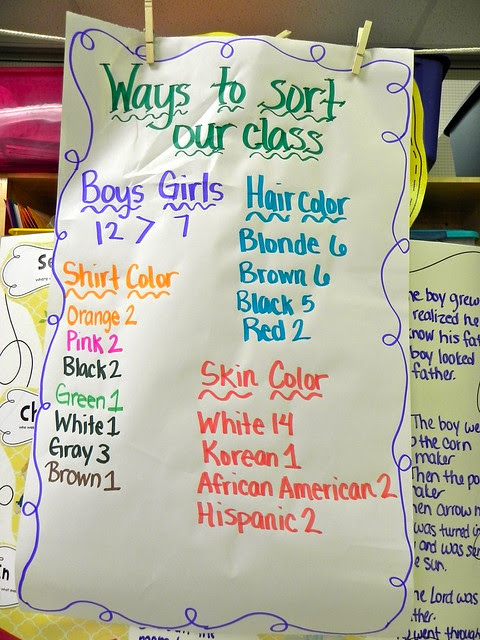 Ways to sort
our class
Boys Girls
12 > 7
Shirt Color
Orange 2
Pink 2
Black 2
Green 1
White 1
Gray 3
Brown 1
Hair Color
Blonde 6
Brown 6
Black 5
Red 2
Skin Color
White 14
Korean 1
African American 2
Hispanic 2
boy grew
realized he
his
boy looked
father.
The boy
the corn
maker
the
arrow
was turned
and was
sun.
Lord was
went through